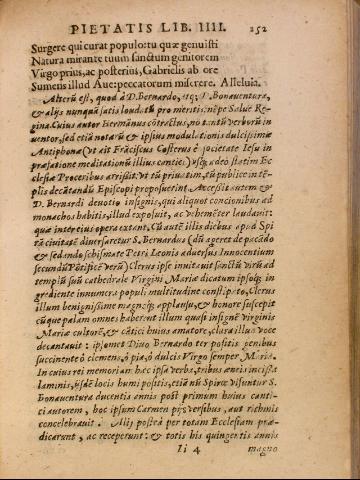 PIETATIS LIB. IIII. 252
Surgere qui curat populo: tu quæ genuisti
Natura mirante tuum sanctum genitorem
Virgo prius, ac posterius, Gabrielis ab ore
Sumens illud Aue: peccatorum miserere. Alleluia.
Alterũ est, quod à D. Bernardo, D. Bonauentura,
& alijs nunquã satis loudatũ pro meritis, nẽpe Salue Re-
gina. Cuius autor Germanus cõtractus, nõ tantũ verborũ in
uentor, sed etiã notarũ & ipsius modulationis dulcissimæ
Antiphonæ (vt ait Frãciscus Costerus è societate Iesu in
præfatione meditationũ illius cantici) vsq; adeò statim Ec
clesiæ Proceribus arrisit: vt tũ priuatim, tũ publice in tẽ-
plis decãtandũ Episcopi proposuerint. Accessit autem &
D. Bernardi deuotio insignis, qui aliquot concionibus ad
monachos habitis, illud exposuit, ac vehemẽter laudauit:
quæ inter eius opera extant. Cũ autẽ illis diebus apud Spi
rã ciuitatẽ diuersaretur S. Bernardus (dũ ageret de pacãdo
& sedando schismate Petri Leonis aduersus Innocentium
secundũ Põtificẽ verũ) Clerus ipse inuitauit sanctũ virũ ad
templũ suũ cathedrale Virgini Mariæ dicatum ipsoq; in
grediente innumera populi multitudine constipato, Clerus
illum benignissime magnoq; applausu, & honore suscepit
cũque palam omnes haberent illum quasi insignẽ virginis
Mariæ cultorẽ, & cãtici huius amatorẽ, clara illud voce
decantauit: ipsemet Diuo Bernardo ter positis genibus
succinente ô clemens, ô pia, ô dulcis Virgo semper Maria.
In cuius rei memoriam hæc ipsa verba, tribus æneis incisa
laminis, ijsdẽ locis humi positis, etiã nũ Spiræ visuntur S.
Bonauentura ducentis annis post primum huius canti-
ci autorem, hoc ipsum Carmen pijs versibus, aut rithmis
concelebrauit. Alij posteà per totam Ecclesiam præ-
dicarunt, ac receperunt: & totis his quingentis annis
Ii 4 magno